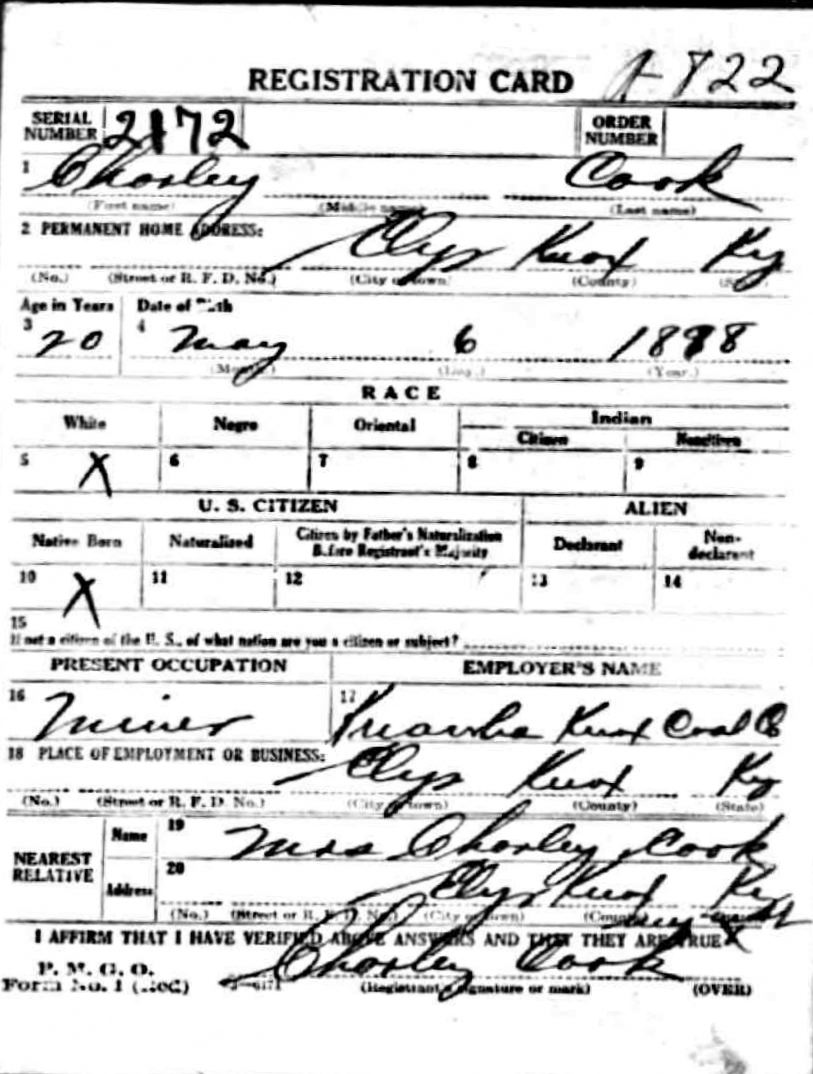 REGISTRATION CARD 1-822
SERIAL NUMBER 2172 ORDER NUMBER
1 Charley Cook
(First name) (Middle name) (Last name)
2 PERMANENT HOME ADDRESS: Elys Knox Ky
(No.) (Street or R. F. D. No.) (City or town) (County) (State)
Age in Years Date of Birth
3 20 4 May 6 1888
(Month.) (Day.) (Year.)
RACE
White Negro Oriental Indian
Citizen Noncitizen
5 X 6 7 8 9
U. S. CITIZEN ALIEN
Native Born Naturalized Citizen by Father's Naturalization Before Registrant's Majority Declarant Non-declarant
10 X 11 12 13 14
15
If not a citizen of the U. S., of what nation are you a citizen or subject?
PRESENT OCCUPATION EMPLOYER'S NAME
16 Miner 17 Knox Coal Co
18 PLACE OF EMPLOYMENT OR BUSINESS: Elys Knox Ky
(No.) (Street or R. F. D. No.) (City or town) (County) (State)
NEAREST RELATIVE Name 19 Mrs Charley Cook
Address 20 Elys Knox Ky
(No.) (Street or R. F. D. No.) (City or town) (County)
I AFFIRM THAT I HAVE VERIFIED ABOVE ANSWERS AND THAT THEY ARE TRUE X
P. M. G. O.
Form No. 1 (Red) Charley Cook
3—6171 (Registrant's signature or mark) (OVER)